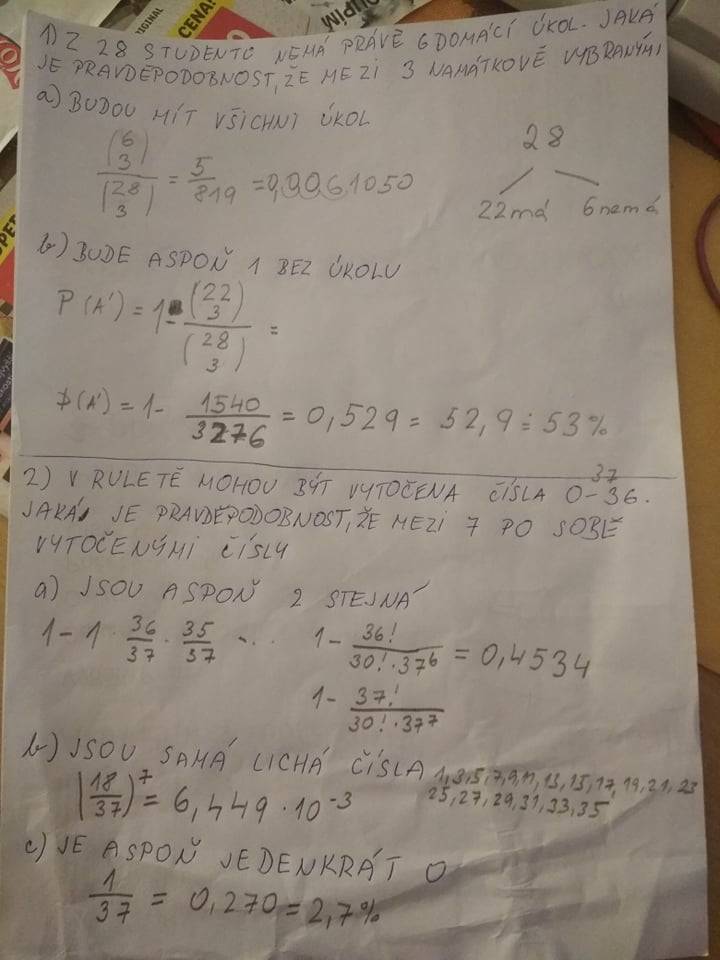 1) Z 28 STUDENTŮ NEMÁ PRÁVĚ 6 DOMÁCÍ ÚKOL. JAKÁ
JE PRAVDĚPODOBNOST, ŽE MEZI 3 NAMÁTKOVĚ VYBRANÝMI
a) BUDOU MÍT VŠICHNI ÚKOL
(6 3) / (28 3) = 5/819 = 0,0061050
28
22 má 6 nemá
b) BUDE ASPOŇ 1 BEZ ÚKOLU
P(A') = 1 - (22 3) / (28 3) =
P(A') = 1 - 1540/3276 = 0,529 = 52,9 ≐ 53%
37
2) V RULETĚ MOHOU BÝT VYTOČENA ČÍSLA 0-36.
JAKÁ JE PRAVDĚPODOBNOST, ŽE MEZI 7 PO SOBĚ
VYTOČENÝMI ČÍSLY
a) JSOU ASPOŇ 2 STEJNÁ
1 - 1 · 36/37 · 35/37 ... 1 - 36!/(30! · 37^6) = 0,4534
1 - 37!/(30! · 37^7)
b) JSOU SAMÁ LICHÁ ČÍSLA 1,3,5,7,9,11,13,15,17,19,21,23
25,27,29,31,33,35
(18/37)^7 = 6,449 · 10^-3
c) JE ASPOŇ JEDENKRÁT 0
1/37 = 0,270 = 2,7%
ORIGINAL
CENA!